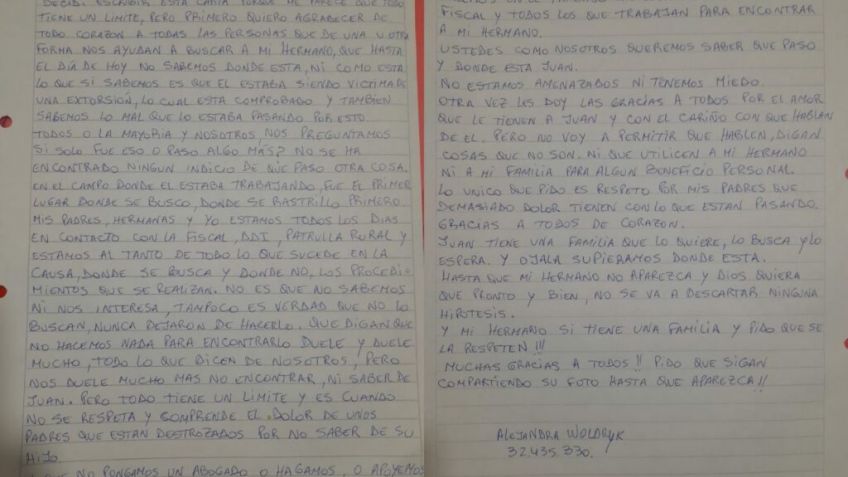 DECIDI ESCRIBIR ESTA CARTA PORQUE ME PARECE QUE TODO
TIENE UN LIMITE, PERO PRIMERO QUIERO AGRADECER DE
TODO CORAZON A TODAS LAS PERSONAS QUE DE UNA U OTRA
FORMA NOS AYUDAN A BUSCAR A MI HERMANO, QUE HASTA
EL DÍA DE HOY NO SABEMOS DONDE ESTA, NI COMO ESTA
LO QUE SI SABEMOS ES QUE EL ESTABA SIENDO VICTIMA DE
UNA EXTORSIÓN, LO CUAL ESTA COMPROBADO Y TAMBIEN
SABEMOS LO MAL QUE LO ESTABA PASANDO POR ESTO.
TODOS O LA MAYORIA Y NOSOTROS, NOS PREGUNTAMOS
SI SOLO FUE ESO O PASO ALGO MÁS? NO SE HA
ENCONTRADO NINGUN INDICIO DE QUE PASO OTRA COSA.
EN EL CAMPO DONDE EL ESTABA TRABAJANDO, FUE EL PRIMER
LUGAR DONDE SE BUSCO, DONDE SE RASTRILLO PRIMERO
MIS PADRES, HERMANAS Y YO ESTAMOS TODOS LOS DIAS
EN CONTACTO CON LA FISCAL, DDI, PATRULLA RURAL Y
ESTAMOS AL TANTO DE TODO LO QUE SUCEDE EN LA
CAUSA, DONDE SE BUSCA Y DONDE NO, LOS PROCEDI-
MIENTOS QUE SE REALIZAN. NO ES QUE NO SABEMOS
NI NOS INTERESA, TAMPOCO ES VERDAD QUE NO LO
BUSCAN, NUNCA DEJARON DE HACERLO. QUE DIGAN QUE
NO HACEMOS NADA PARA ENCONTRARLO DUELE Y DUELE
MUCHO, TODO LO QUE DICEN DE NOSOTROS, PERO
NOS DUELE MUCHO MAS NO ENCONTRAR, NI SABER DE
JUAN. PERO TODO TIENE UN LIMITE Y ES CUANDO
NO SE RESPETA Y COMPRENDE EL DOLOR DE UNOS
PADRES QUE ESTAN DESTROZADOS POR NO SABER DE SU
HIJO
QUE NO PONGAMOS UN ABOGADO O HAGAMOS, O APOYEMOS
FISCAL Y TODOS LOS QUE TRABAJAN PARA ENCONTRAR
A MI HERMANO.
USTEDES COMO NOSOTROS QUEREMOS SABER QUE PASO
Y DONDE ESTA JUAN.
NO ESTAMOS AMENAZADOS NI TENEMOS MIEDO.
OTRA VEZ LES DOY LAS GRACIAS A TODOS POR EL AMOR
QUE LE TIENEN A JUAN Y CON EL CARIÑO CON QUE HABLAN
DE EL. PERO NO VOY A PERMITIR QUE HABLEN, DIGAN
COSAS QUE NO SON. NI QUE UTILICEN A MI HERMANO
NI A MI FAMILIA PARA ALGUN BENEFICIO PERSONAL.
LO UNICO QUE PIDO ES RESPETO POR MIS PADRES QUE
DEMASIADO DOLOR TIENEN CON LO QUE ESTAN PASANDO.
GRACIAS A TODOS DE CORAZON.
JUAN TIENE UNA FAMILIA QUE LO QUIERE, LO BUSCA Y LO
ESPERA. Y OJALA SUPIERAMOS DONDE ESTA.
HASTA QUE MI HERMANO NO APAREZCA Y DIOS QUIERA
QUE PRONTO Y BIEN, NO SE VA A DESCARTAR NINGUNA
HIPOTESIS.
Y MI HERMANO SI TIENE UNA FAMILIA Y PIDO QUE SE
LA RESPETEN!!!
MUCHAS GRACIAS A TODOS!! PIDO QUE SIGAN
COMPARTIENDO SU FOTO HASTA QUE APAREZCA!!
ALEJANDRA WOLDRYK
32.435.330.